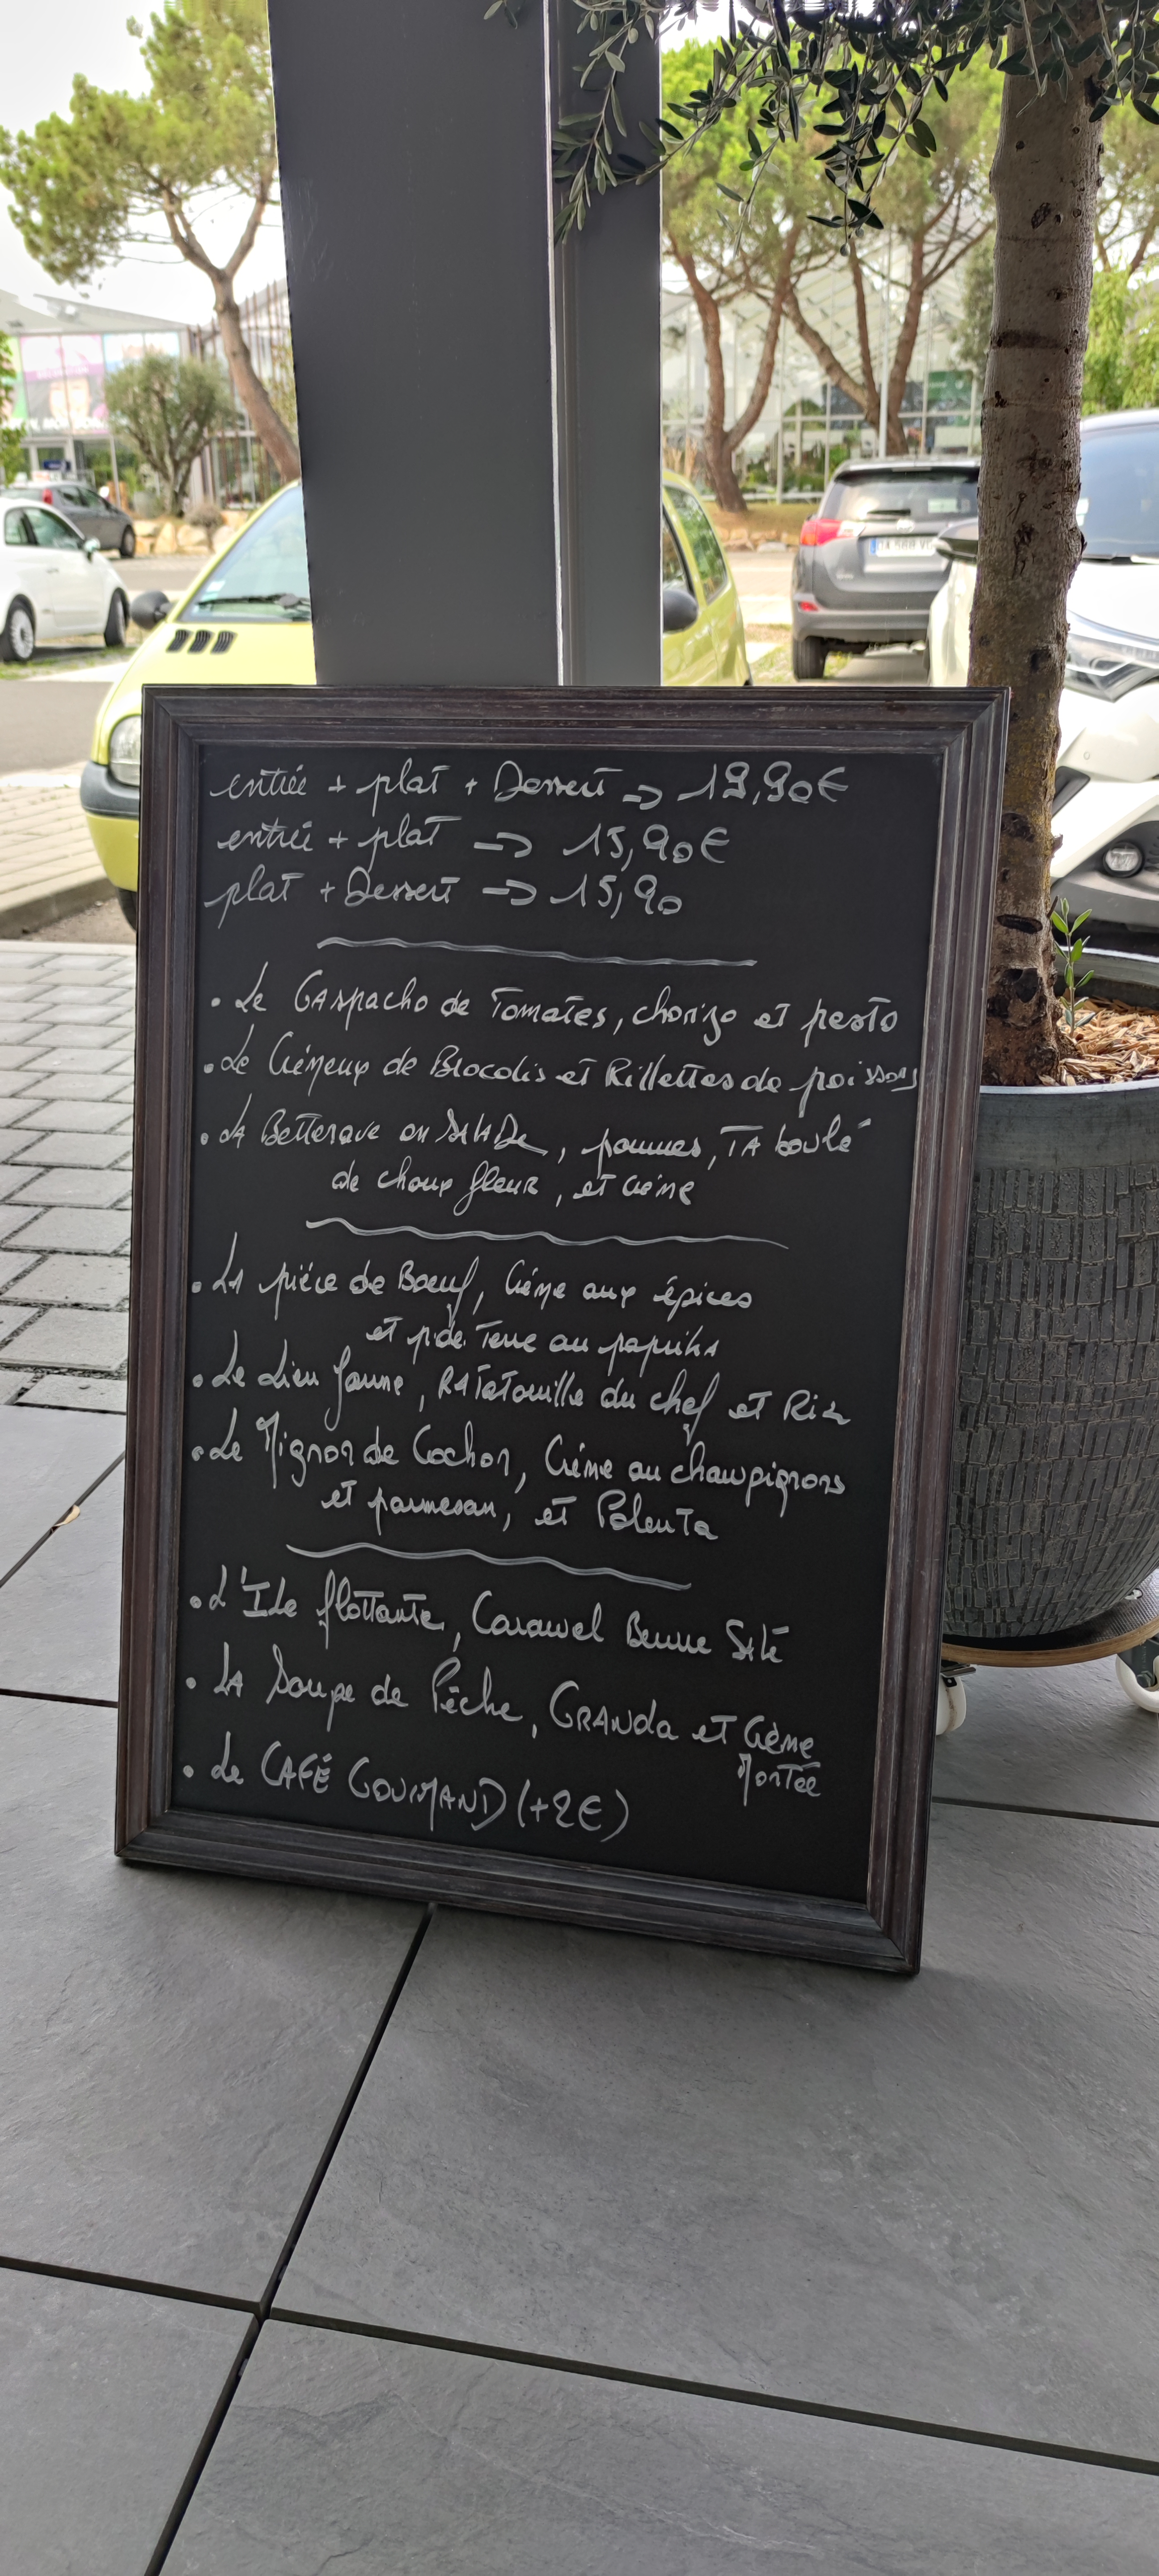 entrée + plat + Dessert => 19,90€
entrée + plat => 15,90€
plat + Dessert => 15,90
• Le GAspacho de Tomates, chorizo et pesto
• Le Crémeux de Brocolis et Rillettes de poissons
• LA Betterave en SALADe, pommes, TAboulé
de choux fleur, et crème
• LA pièce de Boeuf, Crème aux épices
et p.de Terre au paprika
• Le Lieu Jaune, RATatouille du chef et Riz
• Le Mignon de Cochon, Crème au champignons
et parmesan, et Polenta
• L'ILe flottante, Caramel Beurre Salé
• LA Soupe de Pêche, GRANola et Crème
Montée
• Le CAFÉ GOURMAND (+2€)